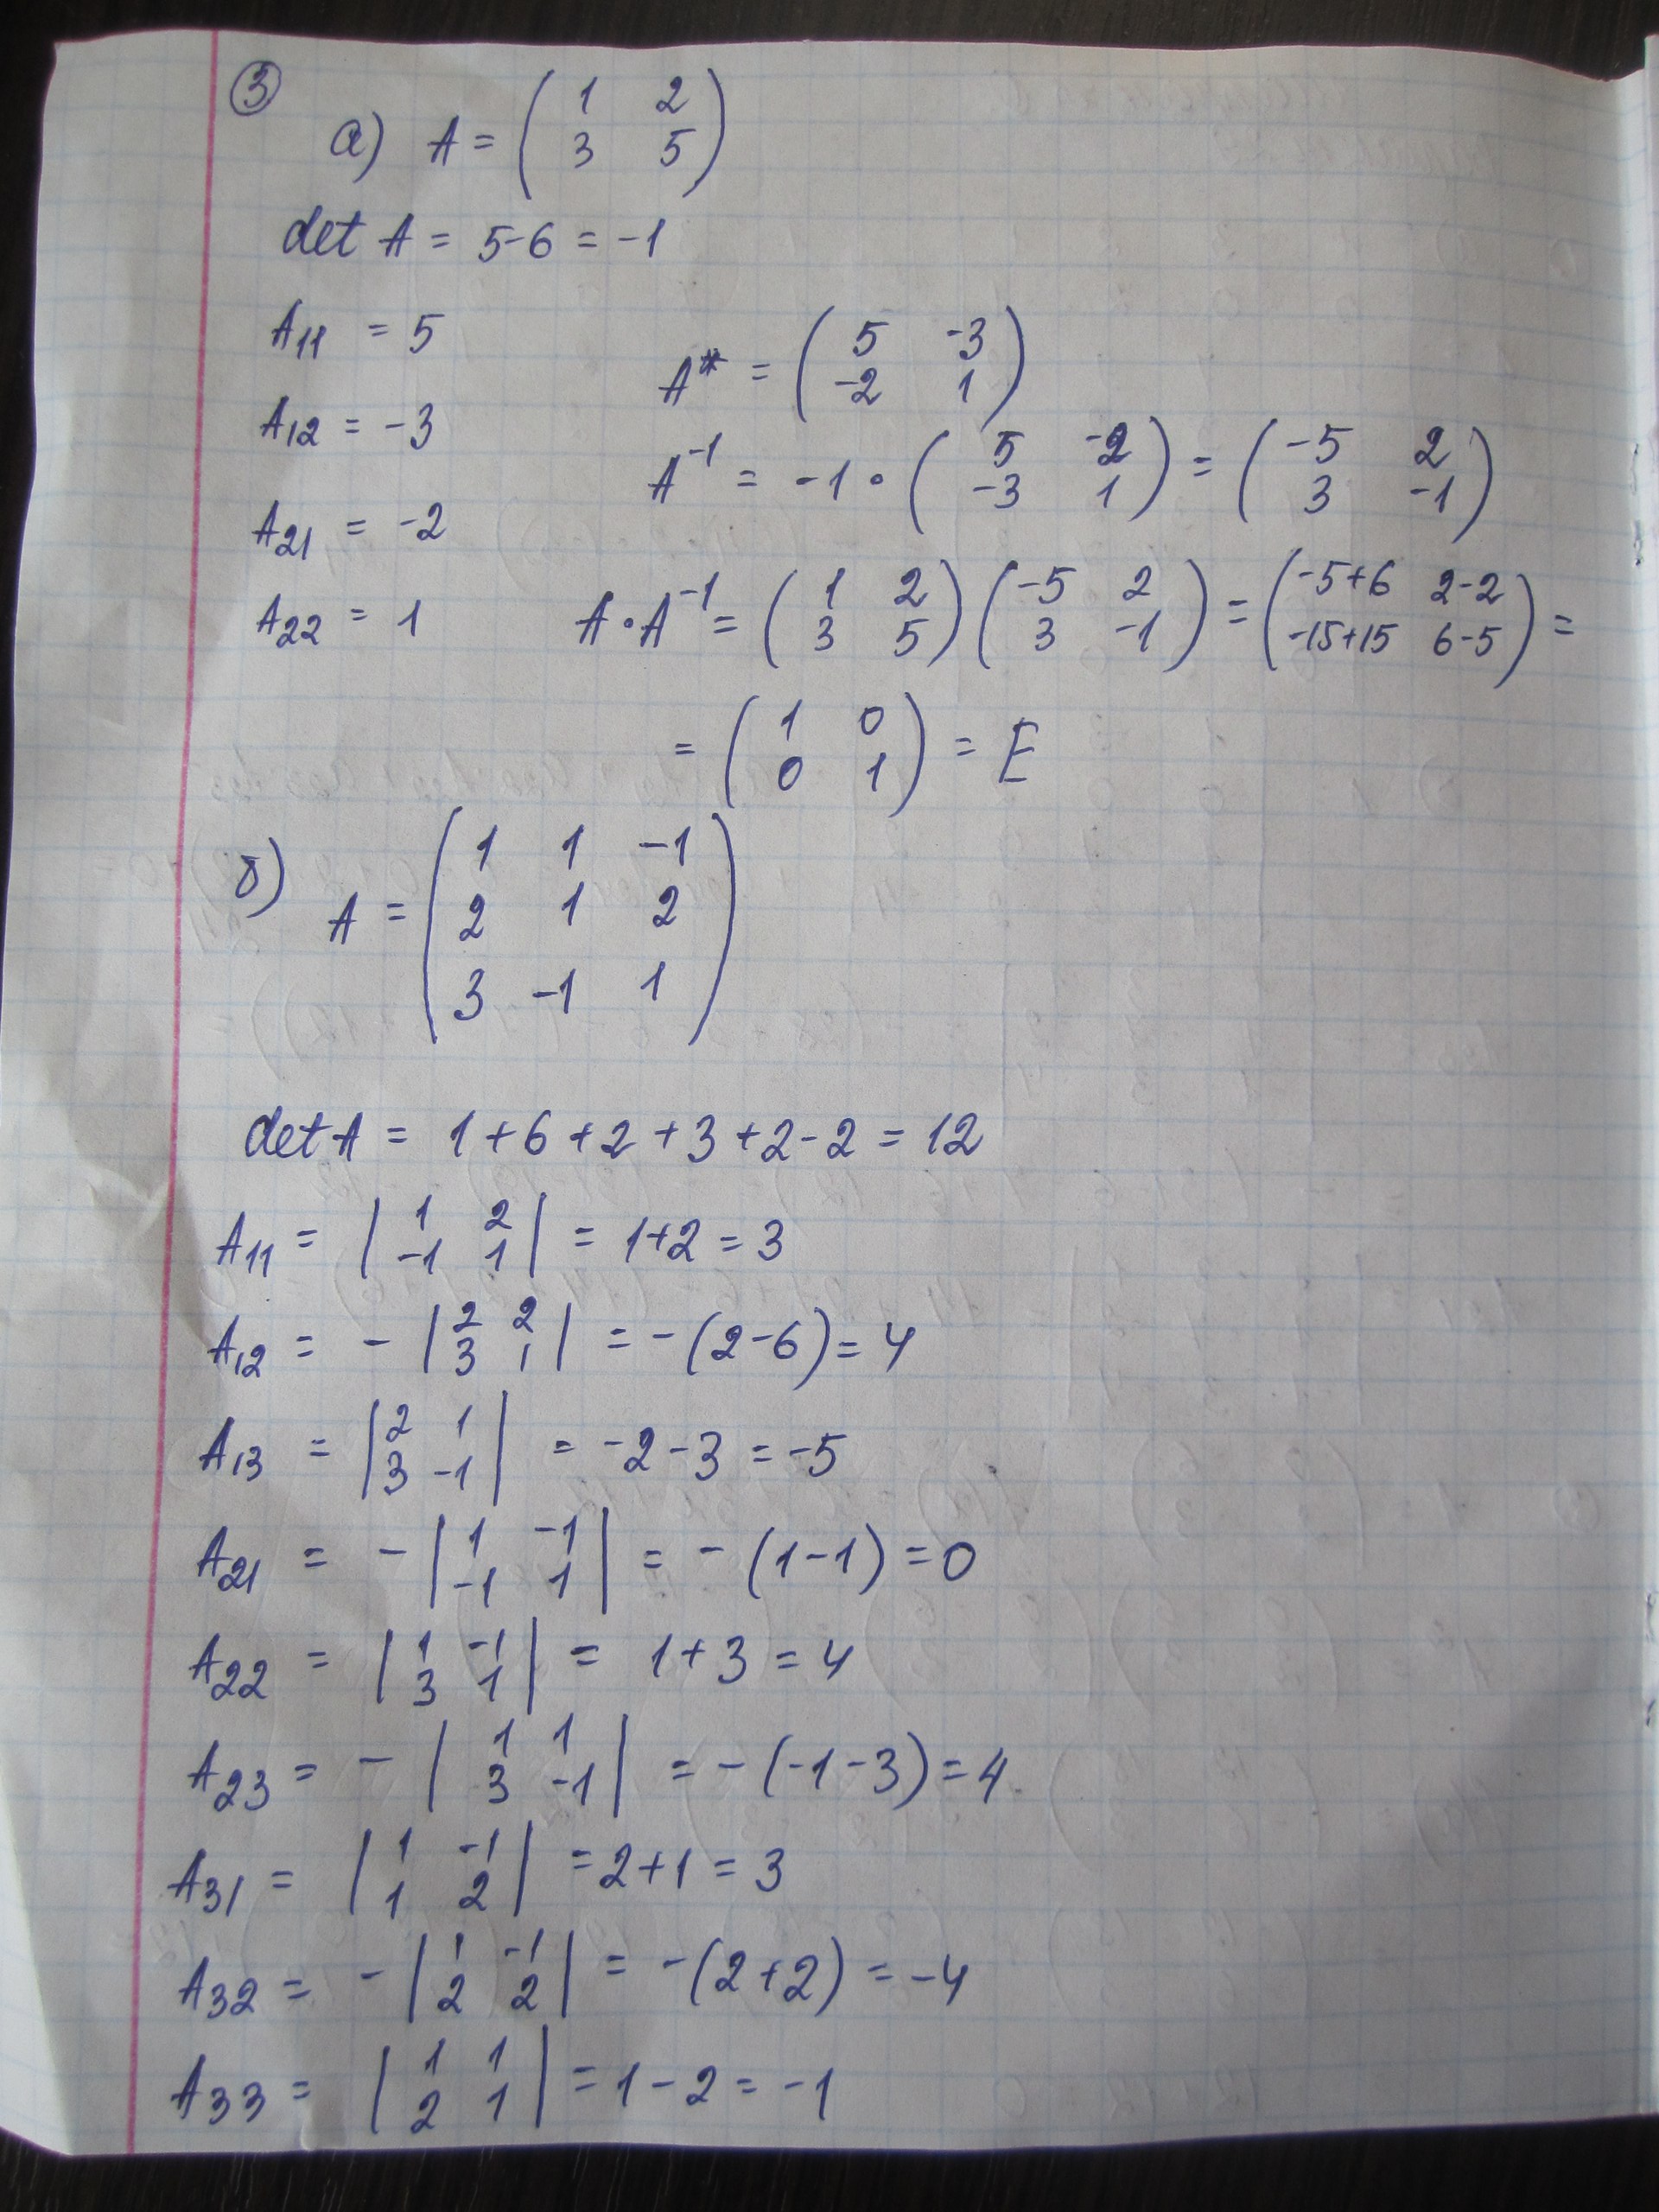 ③
а) A = ( 1 2
3 5 )
det A = 5-6 = -1
A11 = 5
A12 = -3
A21 = -2
A22 = 1
A* = ( 5 -3
-2 1 )
A^-1 = -1 · ( 5 -2
-3 1 ) = ( -5 2
3 -1 )
A·A^-1 = ( 1 2
3 5 ) ( -5 2
3 -1 ) = ( -5+6 2-2
-15+15 6-5 ) =
= ( 1 0
0 1 ) = E
б) A = ( 1 1 -1
2 1 2
3 -1 1 )
det A = 1+6+2+3+2-2 = 12
A11 = | 1 2
-1 1 | = 1+2 = 3
A12 = - | 2 2
3 1 | = -(2-6) = 4
A13 = | 2 1
3 -1 | = -2-3 = -5
A21 = - | 1 -1
-1 1 | = -(1-1) = 0
A22 = | 1 -1
3 1 | = 1+3 = 4
A23 = - | 1 1
3 -1 | = -(-1-3) = 4
A31 = | 1 -1
1 2 | = 2+1 = 3
A32 = - | 1 -1
2 2 | = -(2+2) = -4
A33 = | 1 1
2 1 | = 1-2 = -1